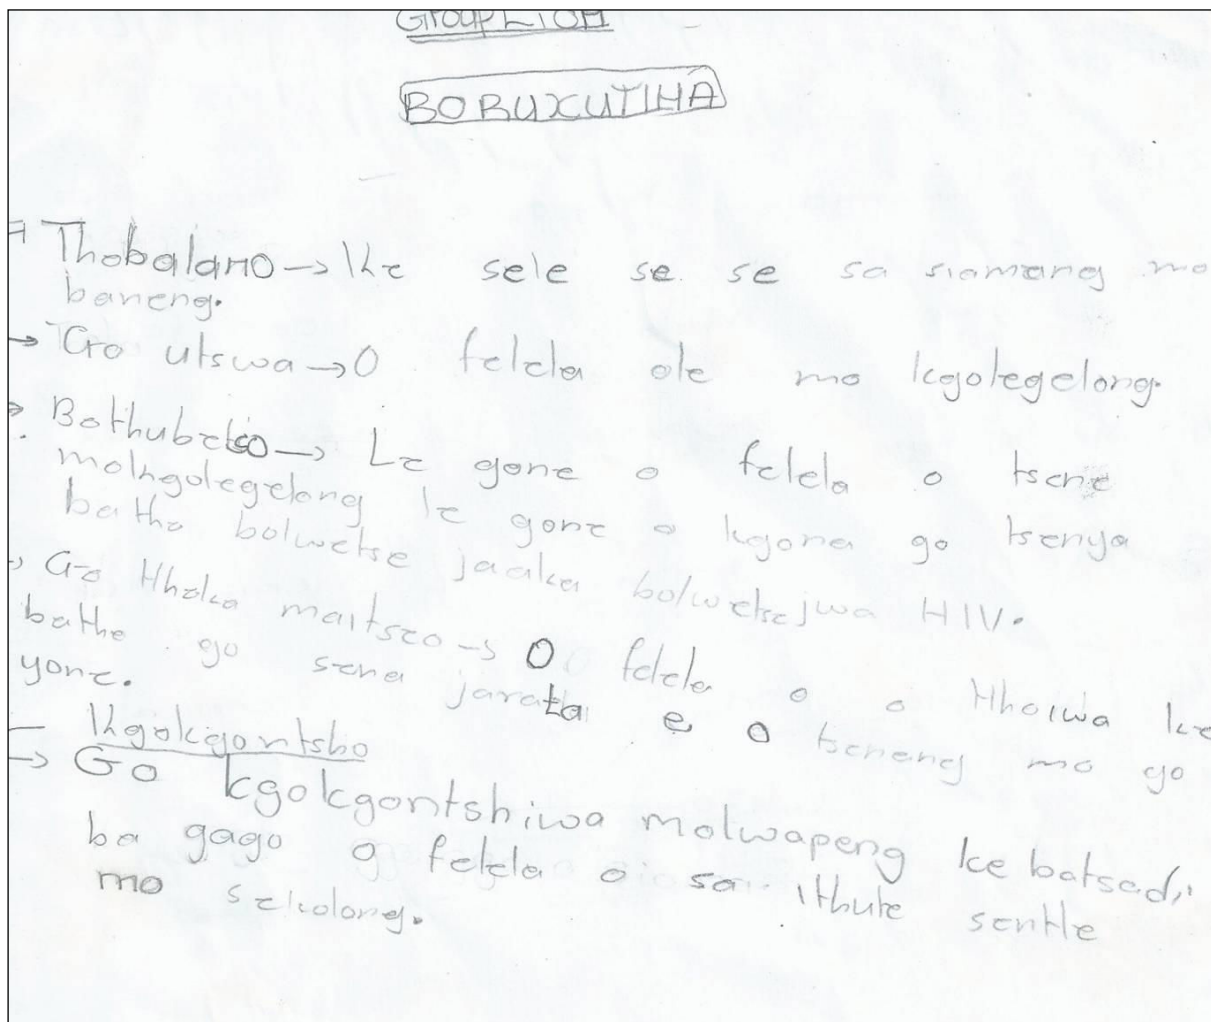 Group LION
BORUXUTIHA
→ Thobalano → Ke sele se se sa siamang mo
baneng.
→ Go utswa → O felela ole mo kgolegelong.
→ Bothubetso → Le gone o felela o tsene
mokgolegelong le gone o kgona go tsenya
batho bolwetse jaaka bolwetse jwa HIV.
→ Go tlhoka maitseo → O felela o o tlhoiwa ke
bathe go sena jarata e o tseneng mo go
yone.
– Kgokgontsho
→ Go kgokgontshiwa molwapeng ke batsadi
ba gago o felela o sa ithute sentle
mo sekolong.